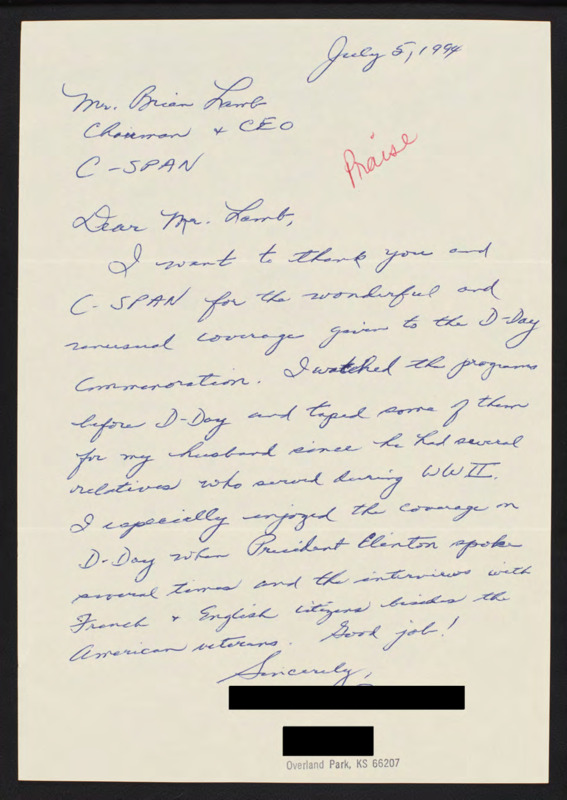 July 5, 1994
Mr. Brian Lamb
Chairman + CEO
C-SPAN
Praise
Dear Mr. Lamb,
I want to thank you and
C-SPAN for the wonderful and
unusual coverage given to the D-Day
Commemoration. I watched the programs
before D-Day and taped some of them
for my husband since he had several
relatives who served during WW II.
I especially enjoyed the coverage on
D-Day when President Clinton spoke
several times and the interviews with
French + English citizens besides the
American veterans. Good job!
Sincerely,
Overland Park, KS 66207